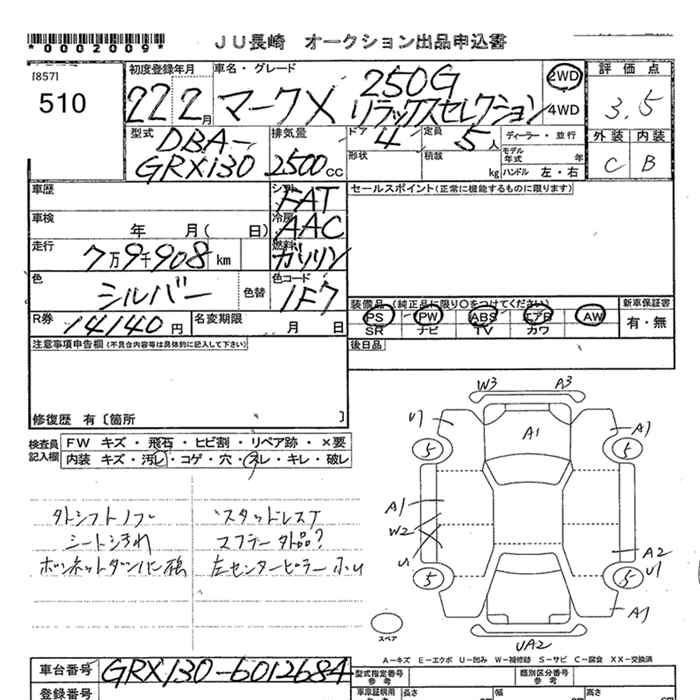 *0002009*
JU長崎 オークション出品申込書
[857]
510
初度登録年月
22 2月
車名・グレード
マークX 250G
リラックスセレクション
2WD
4WD
評価点
3.5
外装 内装
C B
型式
DBA-
GRX130
排気量
2500cc
ドア 4
定員 5人
形状
積載 kg
ディーラー・並行
モデル年式 年
ハンドル 左・右
車歴
シフト
FAT
車検 年 月( 日)
冷房
AAC
走行 7万9千908km
燃料
ガソリン
色 シルバー
色替
色コード
1F7
R券 14140円
名変期限 月 日
セールスポイント(正常に機能するものに限ります)
装備品(純正品に限り○をつけてください)
PS PW ABS エアB AW
SR ナビ TV カワ
新車保証書
有・無
後日品
注意事項申告欄(不具合内容等は具体的に記入して下さい)
修復歴 有〔箇所 〕
検査員記入欄
FW キズ・飛石・ヒビ割・リペア跡・×要
内装 キズ・汚レ・コゲ・穴・スレ・キレ・破レ
スタッドレス
シートシミ
マフラー外品?
左センターピラー
W3 A3
A1
A1
5 5
A1
W2
U
A2
U1
5 5
A1
UA2
スペア
A-キズ E-エクボ U-凹み W-補修跡 S-サビ C-腐食 XX-交換済
車台番号 GRX130-6012684
登録番号
型式指定番号 参考
類別区分番号 参考
車庫証明用 参考
長さ 幅 高さ
cm cm cm